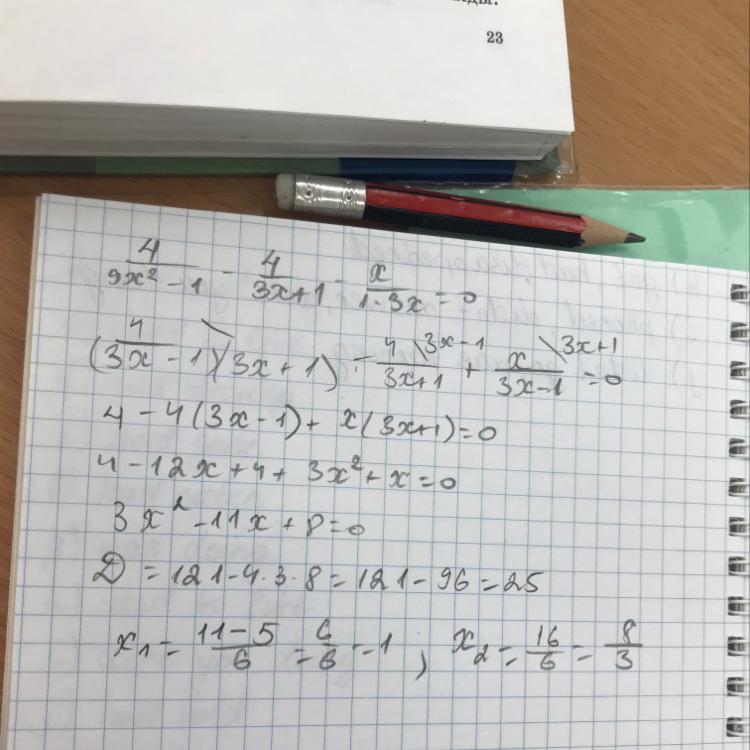 23
4/(9x² - 1) - 4/(3x+1) - x/(1-3x) = 0
4/((3x - 1)(3x + 1)) - 4\3x-1/(3x+1) + x\3x+1/(3x-1) = 0
4 - 4(3x - 1) + x(3x+1) = 0
4 - 12x + 4 + 3x² + x = 0
3x² - 11x + 8 = 0
D = 121 - 4·3·8 = 121 - 96 = 25
x₁ = (11 - 5)/6 = 6/6 = 1 ; x₂ = 16/6 = 8/3